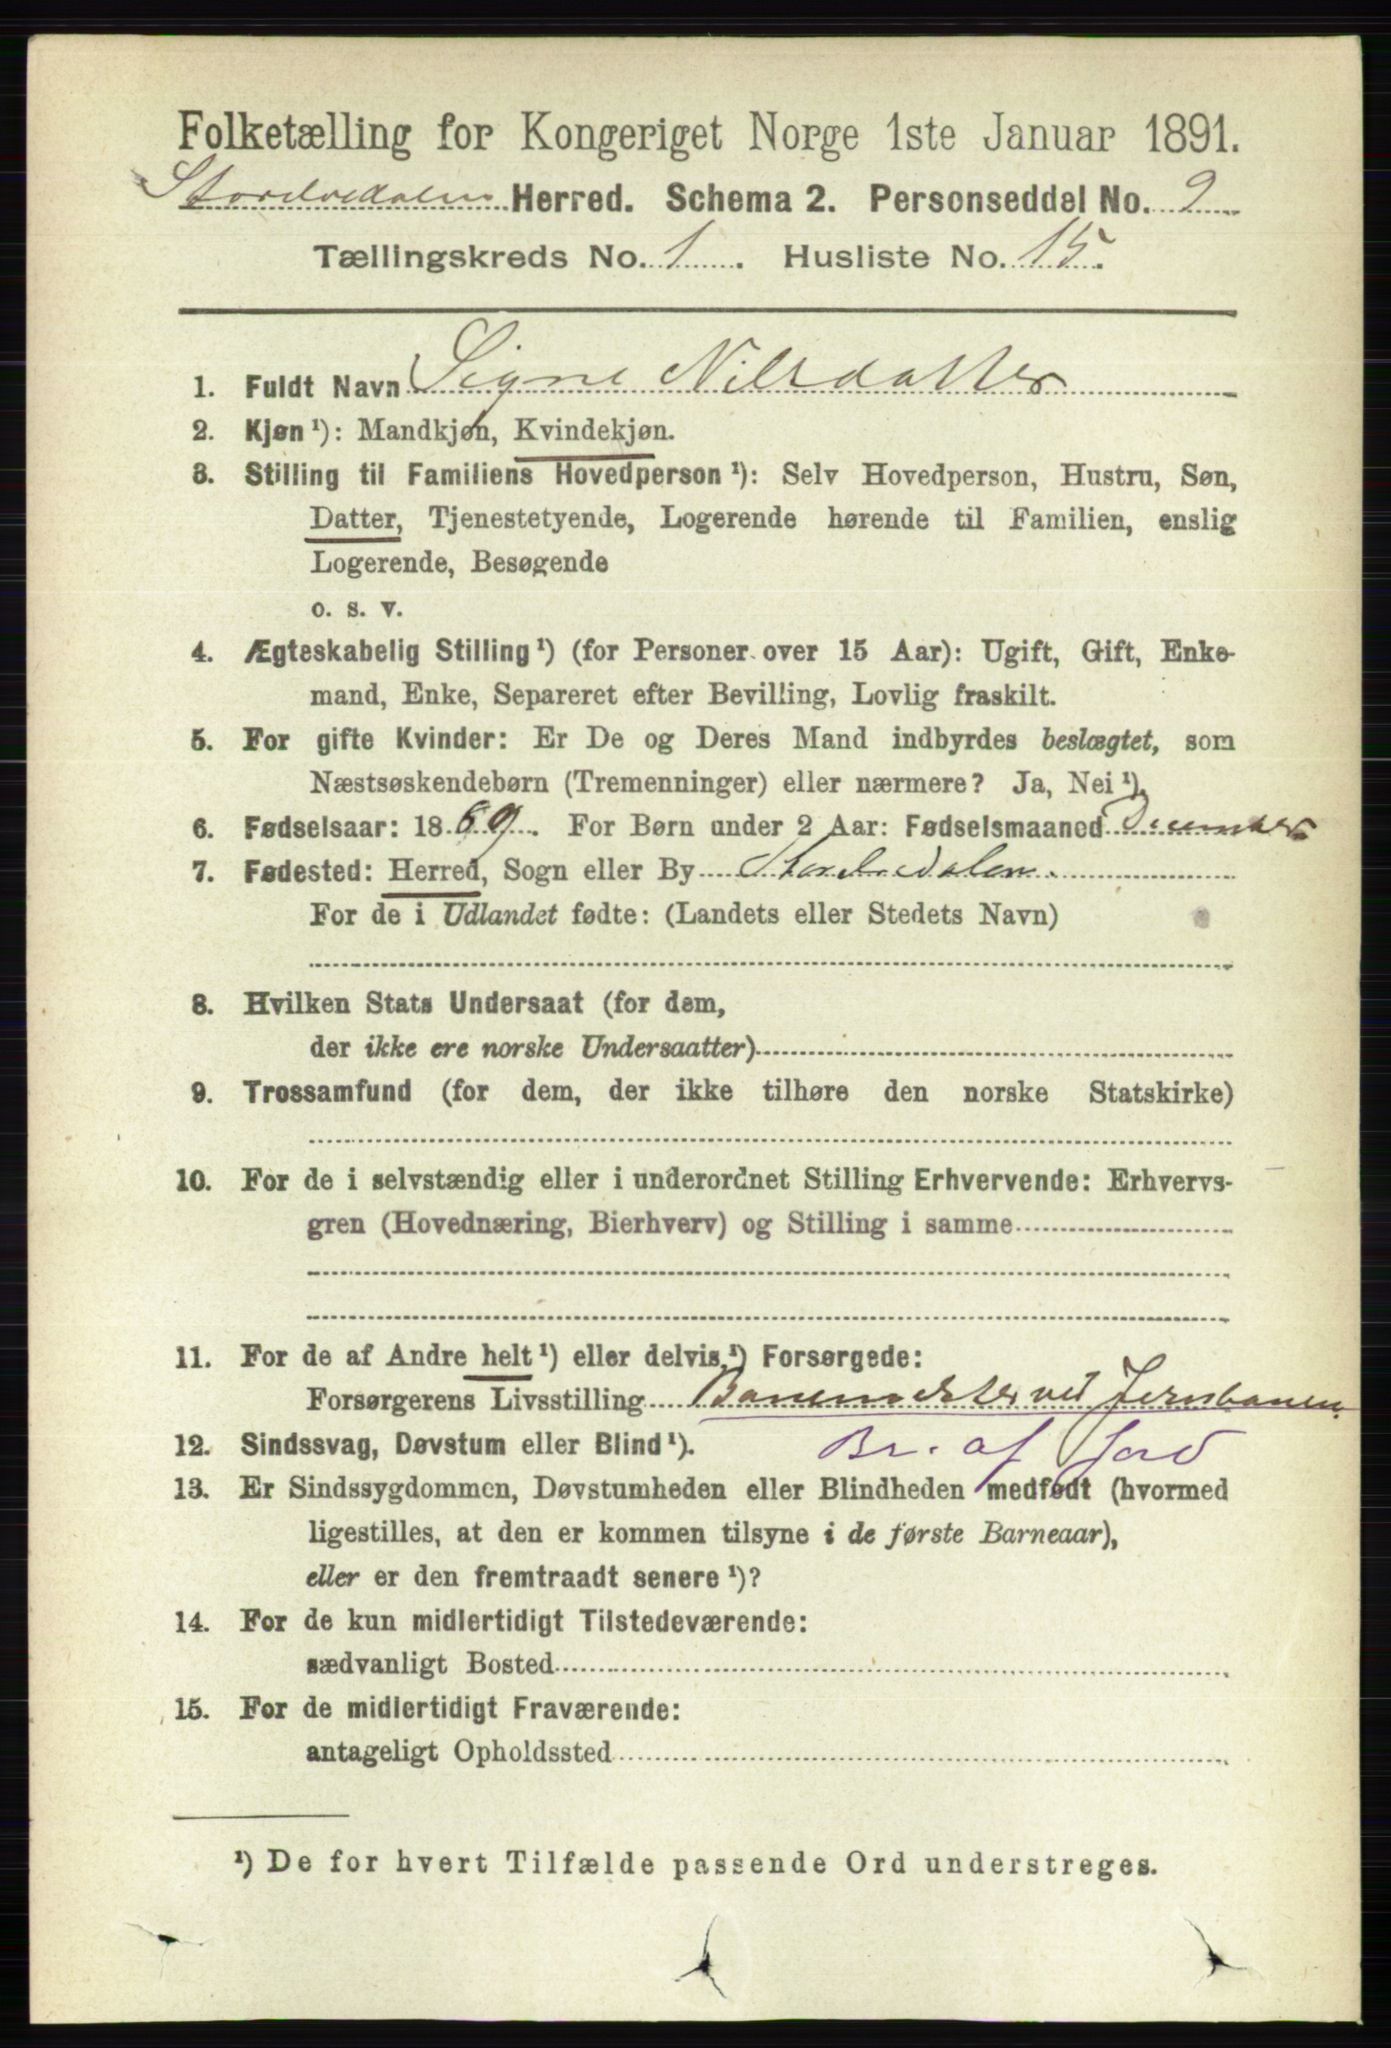 Folketælling for Kongeriget Norge 1ste Januar 1891.
Storelvedalen Herred. Schema 2. Personseddel No. 9
Tællingskreds No. 1. Husliste No. 15.
1. Fuldt Navn Signe Nilsdatter
2. Kjøn ¹): Mandkjøn, Kvindekjøn.
3. Stilling til Familiens Hovedperson ¹): Selv Hovedperson, Hustru, Søn,
Datter, Tjenestetyende, Logerende hørende til Familien, enslig
Logerende, Besøgende
o. s. v.
4. Ægteskabelig Stilling ¹) (for Personer over 15 Aar): Ugift, Gift, Enke-
mand, Enke, Separeret efter Bevilling, Lovlig fraskilt.
5. For gifte Kvinder: Er De og Deres Mand indbyrdes beslægtet, som
Næstsøskendebørn (Tremenninger) eller nærmere? Ja, Nei ¹).
6. Fødselsaar: 18 . For Børn under 2 Aar: Fødselsmaaned December
7. Fødested: Herred, Sogn eller By Storelvedalen.
For de i Udlandet fødte: (Landets eller Stedets Navn)
8. Hvilken Stats Undersaat (for dem,
der ikke ere norske Undersaatter)
9. Trossamfund (for dem, der ikke tilhøre den norske Statskirke)
10. For de i selvstændig eller i underordnet Stilling Erhvervende: Erhvervs-
gren (Hovednæring, Bierhverv) og Stilling i samme
11. For de af Andre helt ¹) eller delvis ¹) Forsørgede:
Forsørgerens Livsstilling Banemester ved Jernbanen
12. Sindssvag, Døvstum eller Blind ¹). Br. af Jord
13. Er Sindssygdommen, Døvstumheden eller Blindheden medfødt (hvormed
ligestilles, at den er kommen tilsyne i de første Barneaar),
eller er den fremtraadt senere ¹)?
14. For de kun midlertidigt Tilstedeværende:
sædvanligt Bosted
15. For de midlertidigt Fraværende:
antageligt Opholdssted
¹) De for hvert Tilfælde passende Ord understreges.